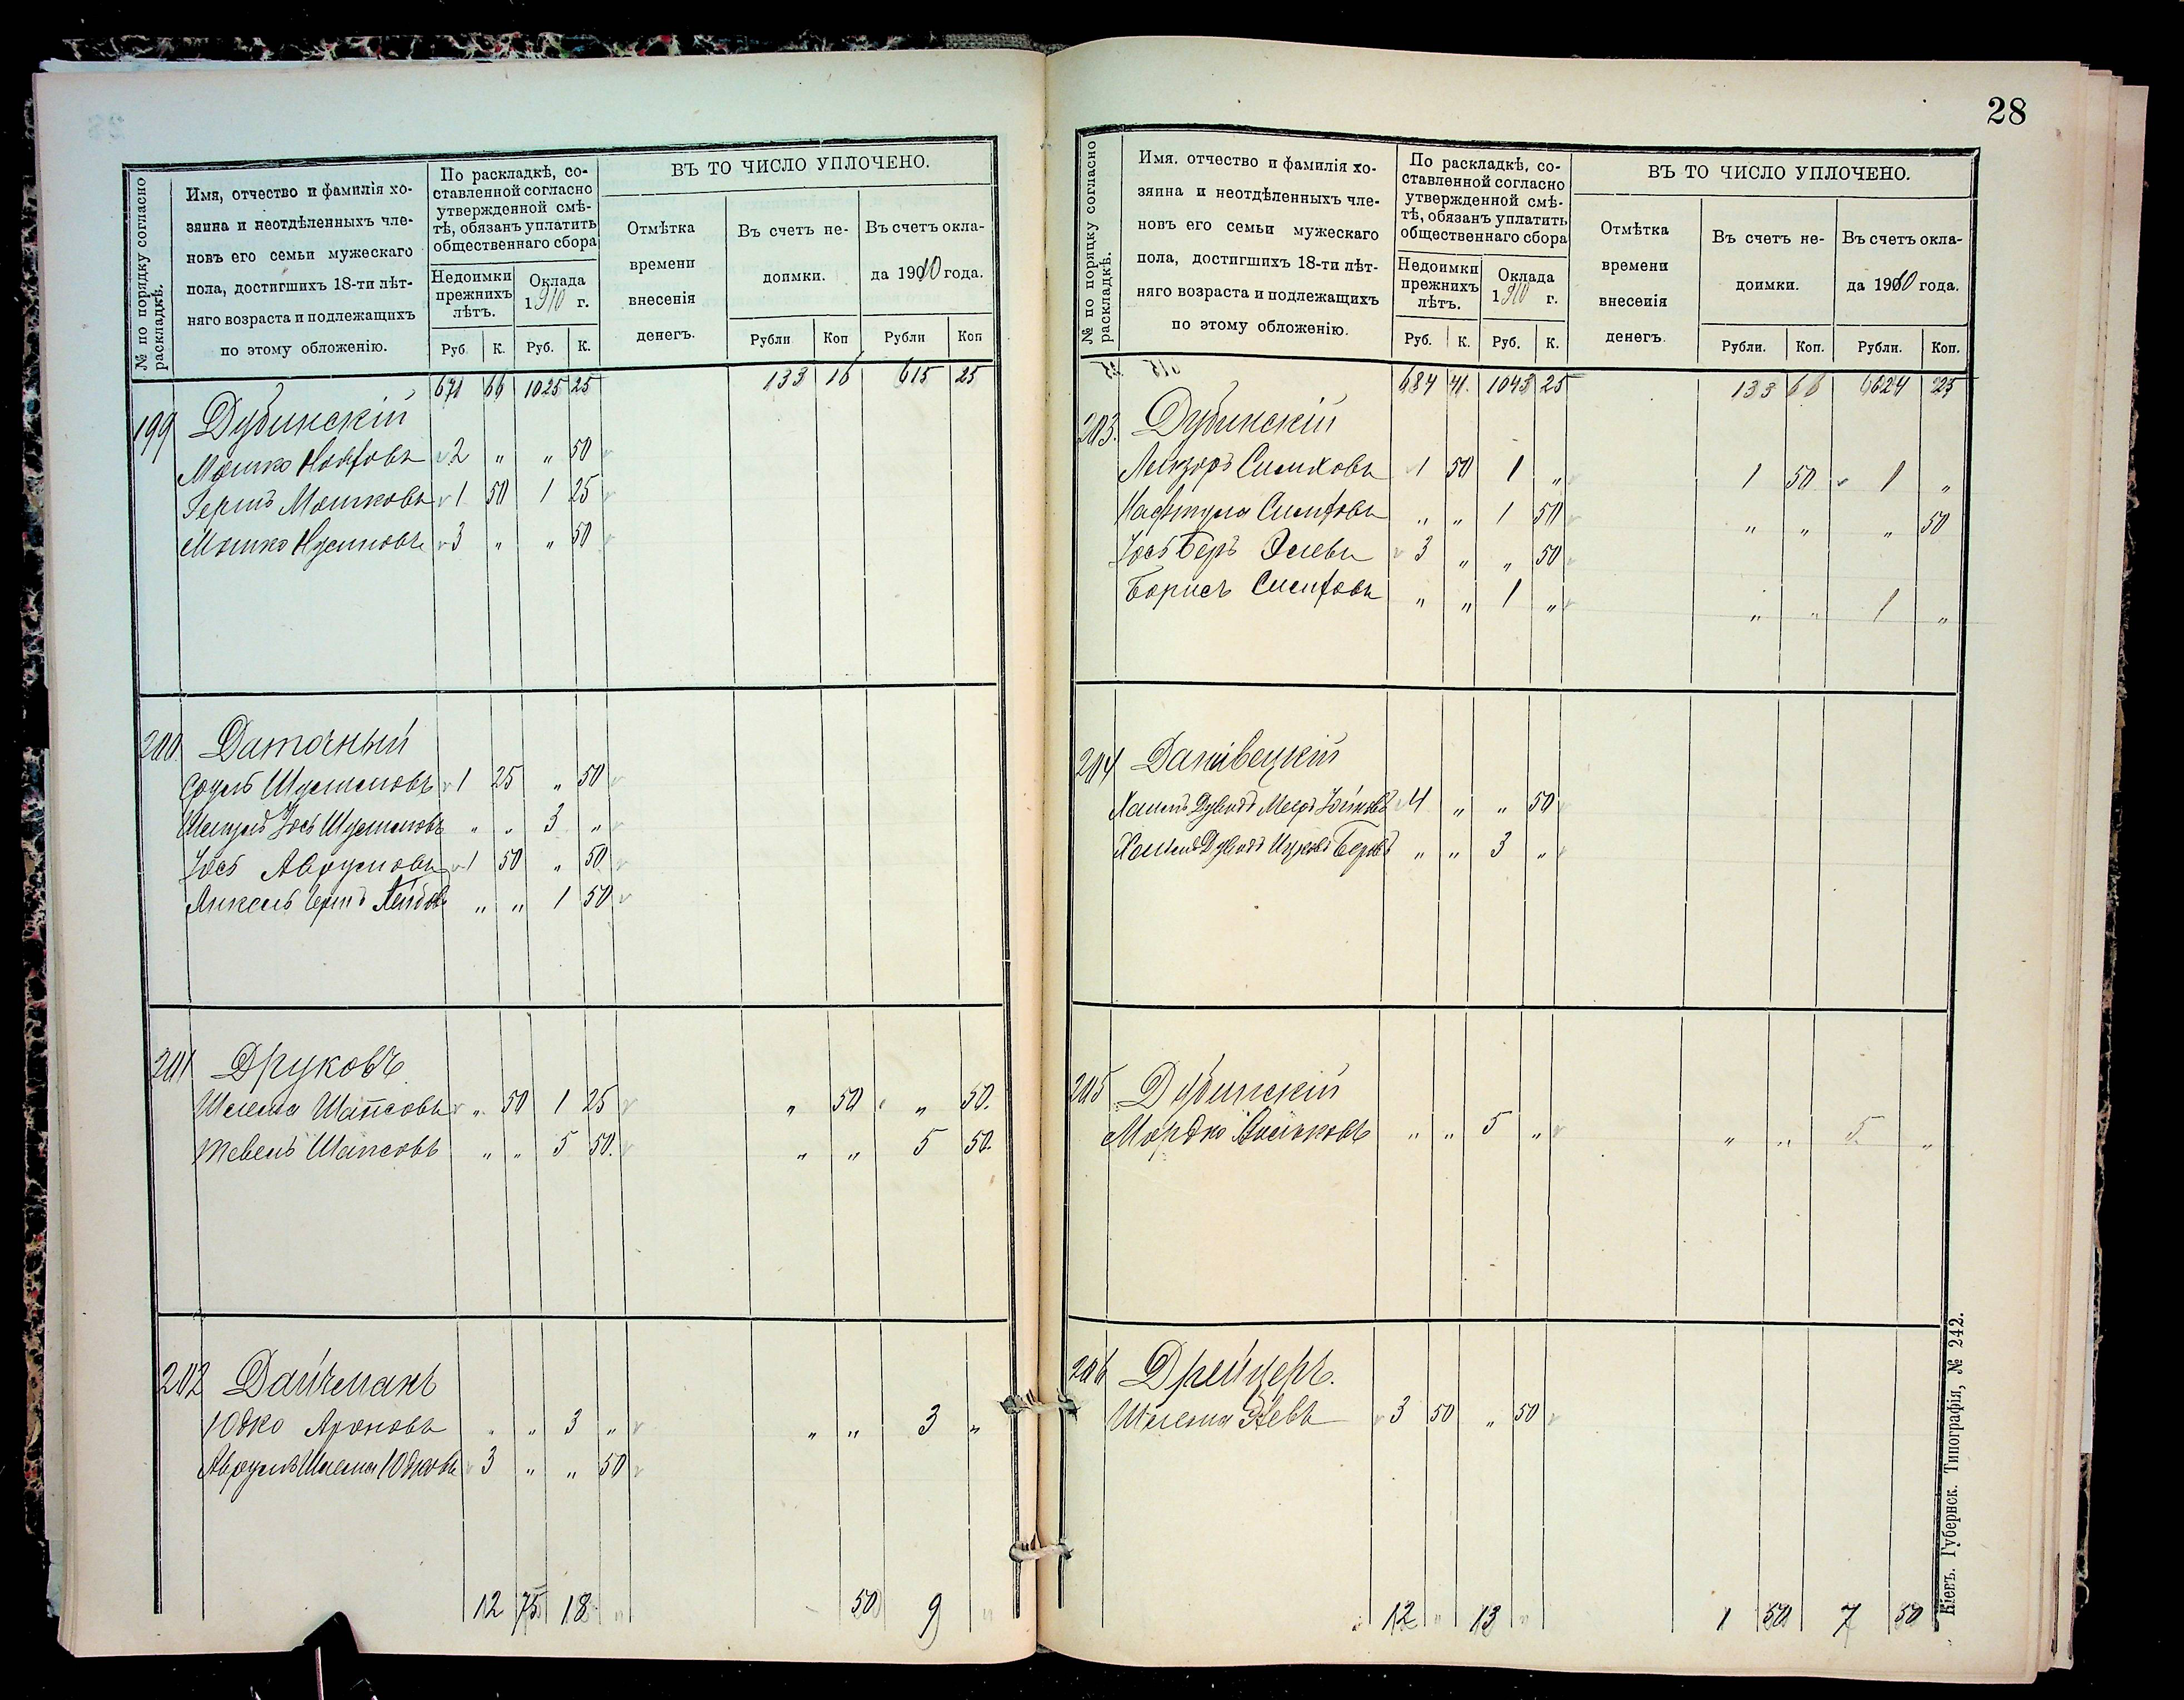 № по порядку согласно раскладкѣ.
Имя, отчество и фамилія хо-
зяина и неотдѣленныхъ чле-
новъ его семьи мужескаго
пола, достигшихъ 18-ти лѣт-
няго возраста и подлежащихъ
по этому обложенію.
По раскладкѣ, со-
ставленной согласно
утвержденной смѣ-
тѣ, обязанъ уплатить
общественнаго сбора
Недоимки
прежнихъ
лѣтъ.
Оклада
1910 г.
Руб. К. Руб. К.
ВЪ ТО ЧИСЛО УПЛОЧЕНО.
Отмѣтка
времени
внесенія
денегъ.
Въ счетъ не-
доимки.
Въ счетъ окла-
да 1910 года.
Рубли Коп Рубли Коп
671 66 1025 25 133 16 615 25
199 Дубинскій
Мошко 2 " " 50
Гершъ Мошковъ 1 50 1 25
Мошко Нусиновъ 3 " " 50
200 Даточный
Шулимовъ 1 25 " 50
Іось Шулимовъ " " 3 "
Іось Аврумовъ 1 50 " 50
Янкель Гершъ " " 1 50
201 Друковъ
Шлема Шапсовъ " 50 1 25 " 50 " 50.
Тевель Шапсовъ " " 5 50. " " 5 50.
202 Дайчманъ
Юдко Ароновъ " " 3 " " " 3 "
Аврумъ Шлема Юдковъ 3 " " 50
12 75 18 " 50 9 "
28
№ по порядку согласно раскладкѣ.
Имя, отчество и фамилія хо-
зяина и неотдѣленныхъ чле-
новъ его семьи мужескаго
пола, достигшихъ 18-ти лѣт-
няго возраста и подлежащихъ
по этому обложенію.
По раскладкѣ, со-
ставленной согласно
утвержденной смѣ-
тѣ, обязанъ уплатить
общественнаго сбора
Недоимки
прежнихъ
лѣтъ.
Оклада
1910 г.
Руб. К. Руб. К.
ВЪ ТО ЧИСЛО УПЛОЧЕНО.
Отмѣтка
времени
внесенія
денегъ.
Въ счетъ не-
доимки.
Въ счетъ окла-
да 1910 года.
Рубли. Коп. Рубли. Коп.
684 41. 1043 25 133 66 624 25
203. Дубинскій
Лейзоръ Симховъ 1 50 1 " 1 50 1 "
Нафтула Симховъ " " 1 50 " " " 50
Іось Беръ Элевъ 3 " " 50
Борисъ Симховъ " " 1 " " " 1 "
204 Данівецкій
Хаимъ Дувидъ Мееръ 4 " " 50
Хаимъ Дувидъ Ицковъ Беровъ " " 3 "
205 Дубинскій
Мордко " " 5 " " " 5 "
206 Дрейцеръ.
Шлема 3 50 " 50
12 " 13 " 1 50 7 50
Кіевъ. Губернск. Типографія, № 242.